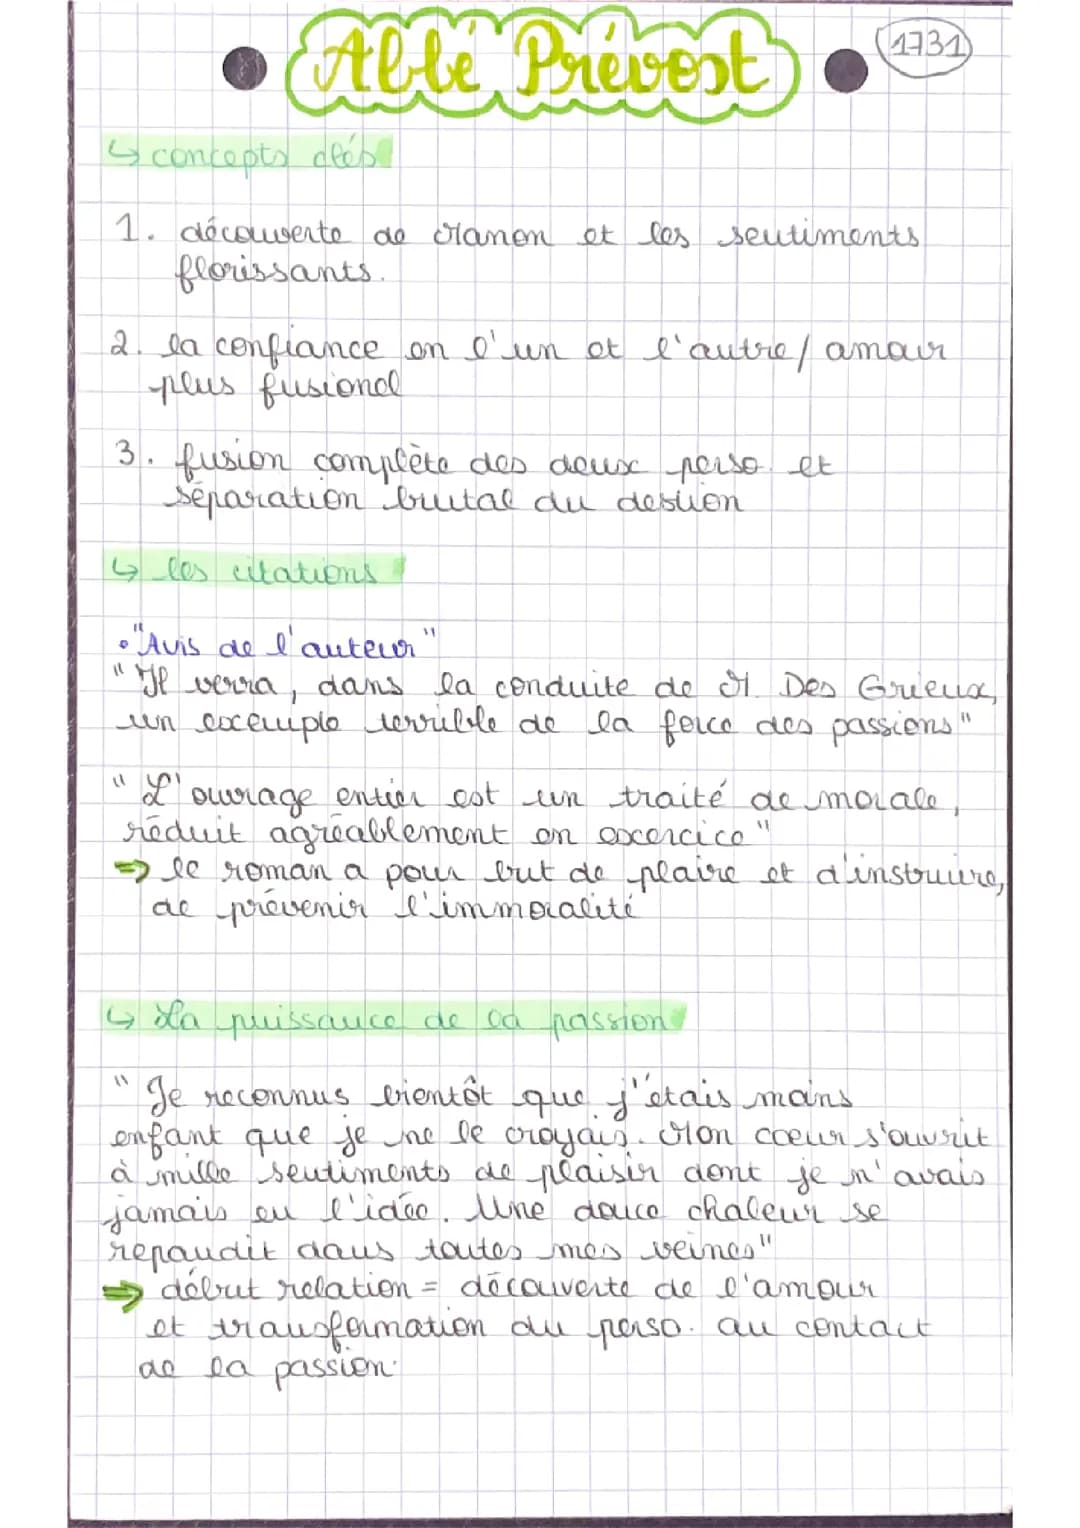 Abbé Prévost
1731
↳ concepts clés
1. découverte de Manon et les sentiments
florissants.
2. la confiance en l'un et l'autre / amour
plus fusionel
3. fusion complète des deux perso. et
séparation brutal du destion
↳ les citations
• "Avis de l'auteur"
"Il verra, dans la conduite de M. Des Grieux,
un exemple terrible de la force des passions"
"L'ouvrage entier est un traité de morale,
réduit agréablement en exercice"
⇒ le roman a pour but de plaire et d'instruire,
de prévenir l'immoralité
↳ La puissance de la passion
"Je reconnus bientôt que j'étais moins
enfant que je ne le croyais. Mon coeur s'ouvrit
à mille sentiments de plaisir dont je n'avais
jamais eu l'idée. Une douce chaleur se
repandit dans toutes mes veines"
⇒ début relation = découverte de l'amour
et transformation du perso. au contact
de la passion.